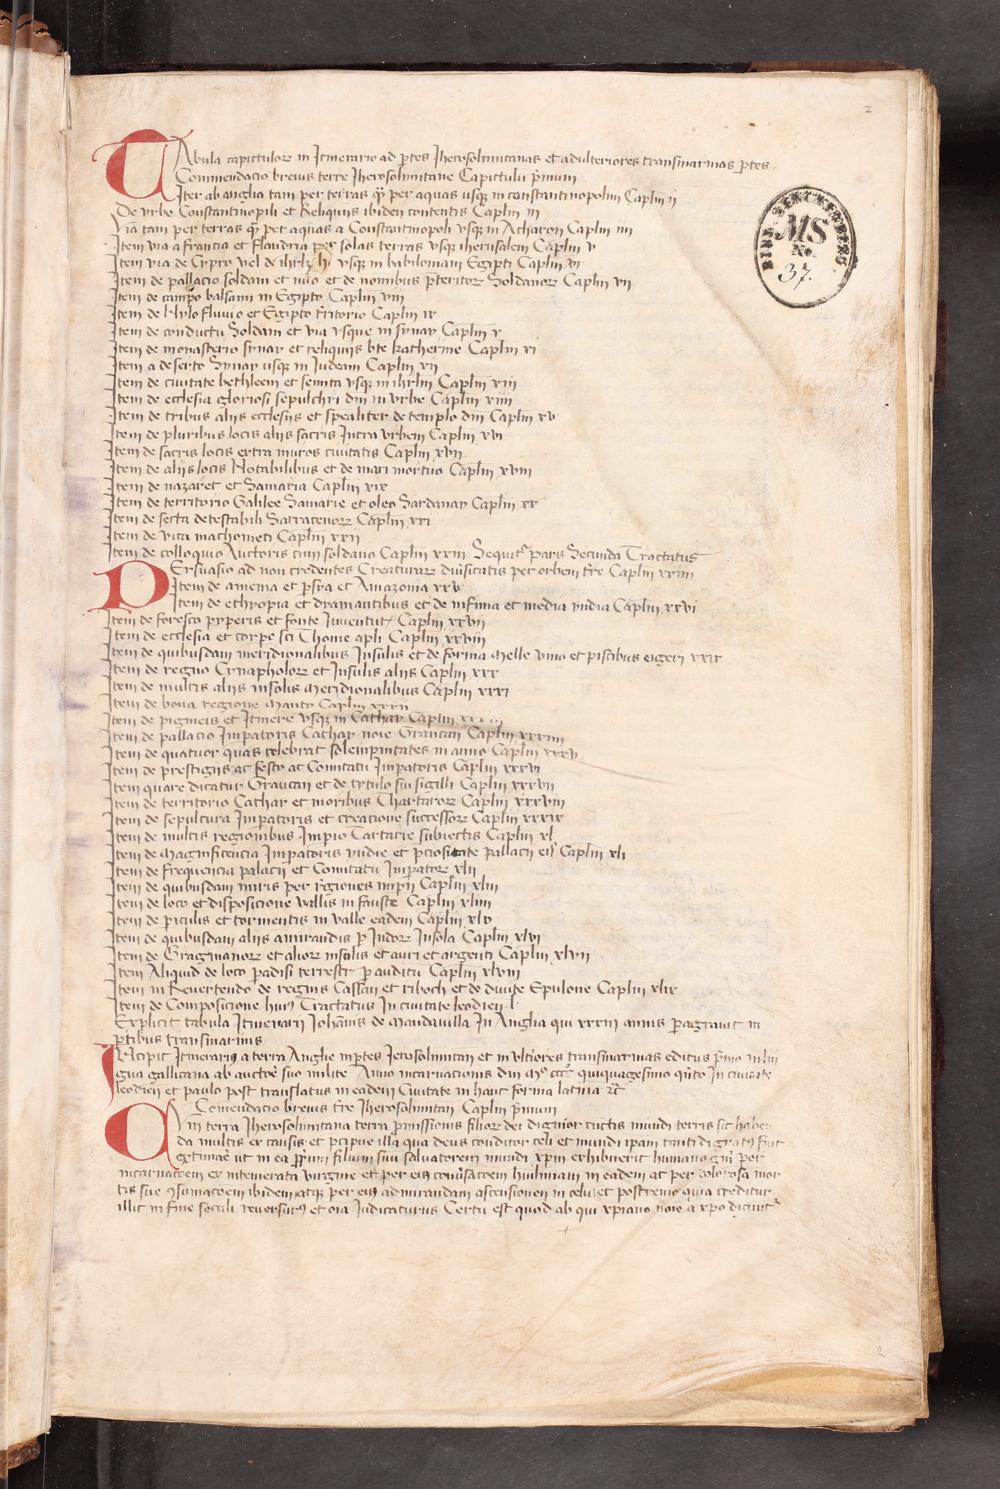 2
TAbula capittulorꝝ in Itinerario ad ꝑtes Iherosolimitanas et ad ulteriores transmarinas ꝑtes
Commendacio breuis terre Iherosolimitane Capittulū pͥmum
Iter ab anglia tam per terras qͣ per aquas usqꝫ in constantinopolim Caplm ii
De vrbe Constantinopili et Reliquiis ibidem contentis Caplm iii
Via tam per terras qͣ per aquas a Constantinopoli vsqꝫ in Acharon Caplm iiii
Item via a francia et flandria per solas terras vsqꝫ iherusalem Caplm v
Item via de Cypro vel de ihrlꝫ vsqꝫ in babiloniam Egipti Caplm vi
Item de pallacio soldani et nōio et de nominibus p̄teritorꝝ Soldanorꝝ Caplm vii
Item de campo balsami in Egipto Caplm viii
Item de Nylo fluuio et Egipto tͥritorio Caplm ix
Item de conductu Soldani et via vsque in synay Caplm x
Item de monasterio synay et reliquiis bt̄e katherine Caplm xi
Item a deserto Synay usqꝫ in Iudeam Caplm xii
Item de ciuitate bethleem et semita vsqꝫ in ihrlm Caplm xiii
Item de ecclesia gloriosi sepulchri dn̄i in vrbe Caplm xiiii
Item de tribus aliis ecclesiis et spealiter de templo dn̄i Caplm xv
Item de pluribus locis aliis sacris Intra vrbem Caplm xvi
Item de sacris locis extra muros ciuitatis Caplm xvii
Item de aliis locis Notabilibus et de mari mortuo Caplm xviii
Item de nazaret et Samaria Caplm xix
Item de territorio Galilee Samarie et oleo Sardanay Caplm xx
Item de secta detestabili Sarracenorꝝ Caplm xxi
Item de vita machometi Caplm xxii
Item de colloquio Auctoris cum soldano Caplm xxiii Sequitͬ pars Secunda Tractatus
PErsuasio ad non credentes Creaturarꝝ diuͥsicatis per orbem tr̄e Caplm xxiiii
Item de amenia et ꝑsya et Amazonia xxv
Item de ethyopia et dyamantibus et de infima et media india Caplm xxvi
Item de foresto pyperis et fonte Iuuentutꝭ Caplm xxvii
Item de ecclesia et corꝑe sc̄i Thome apl̄i Caplm xxviii
Item de quibusdam meridionalibus Insulis et de forma melle vino et piscibus eigeri xxix
Item de regno Cynapholorꝝ et Insulis aliis Caplm xxx
Item de multis aliis insolis meridionalibus Caplm xxxi
Item de bona regione manty Caplm xxxii
Item de pigmeis et Itinere vsqꝫ in Cathay Caplm xxxiii
Item de pallacio Imꝑatoris Cathay noie Grautan Caplm xxxiiii
Item de quatuor quas celebrat solempnitates in anno Caplm xxxv
Item de prestigiis ac festo ac Comitatu Imꝑatoris Caplm xxxvi
Item quare dicatur Graucan et de tytulo sui sigilli Caplm xxxvii
Item de territorio Cathay et moribus Thartarorꝝ Caplm xxxviii
Item de sepultura Imꝑatoris et creatione successorꝝ Caplm xxxix
Item de multis regionibus Imꝑio Tartarie subiectis Caplm xl
Item de magnificencia Imꝑatoris yndie et p̄ciositate pallacii eiꝰ Caplm xli
Item de frequencia palacii et Comitatu Imꝑatorꝭ xlii
Item de quibusdam miris per r̄giones imꝑii Caplm xliii
Item de loco et disposicione vallis in fauste Caplm xliiii
Item de ꝑiculis et tormentis in valle eadem Caplm xlv
Item de quibusdam aliis amirandis ꝑ Indorꝝ Insola Caplm xlvi
Item de Bragmanorꝝ et aliorꝝ insulis et auri et argenti Caplm xlvii
Item Aliquid de loco ꝑadisi terrestrꝭ ꝑ auditū Caplm xlviii
Item in Reuertendo de regnis Cassan et riboch et de diuite Epulone Caplm xlix
Item de Composicione huiꝰ Tractatus In ciuitate leodien̄ l
Explicit tabula Itinerarii Iohānis de Mandauilla In Anglia qui xxxiii annis ꝑagrauit in
ꝑtibus transmarinis
INcipit Itinerariꝰ a terra Anglie in ꝑtes Ierosolimitan̄ et in vltͥiores transmarinas editus pͥmo in lin
gua gallicana ab auctōe suo milite Anno incarnacionis dni Mͦ cccͦ quinquagesimo qͥnto In ciuitate
leodien̄ et paulo post translatus in eadem Ciuitate in hanc forma latinā ⁊c̄
Comendacio breuis tr̄e Iherosolimitan̄ Caplm pͥmum
Cvm terra Iherosolimitana terra ꝓmissionis filiorꝝ dei dignior cūctis mundi terris sit haben
da multis ex causis et p̄cipue illa qua deus conditor celi et mundi ipam tanti dignatꝰ fuit
extimare ut in ea ꝓprium filium suū saluatorem mundi xp̄m exhibuerit humano gn̄i per
incarnatōem ex intemerata virgine et per eiꝰ conuͥsatōem hu̅ilimam in eadem ac per dolorosa mor
tis sue ꝯsumatōem ibidem atqꝫ per eiꝰ admirandam ascensionem in celū et postremo quia creditur
illic in fine seculi reuersurꝰ et oia Iudicaturus Certū est quod ab qui xp̄iano noīe a xp̄o dicuntͬ
MS
No.
37.